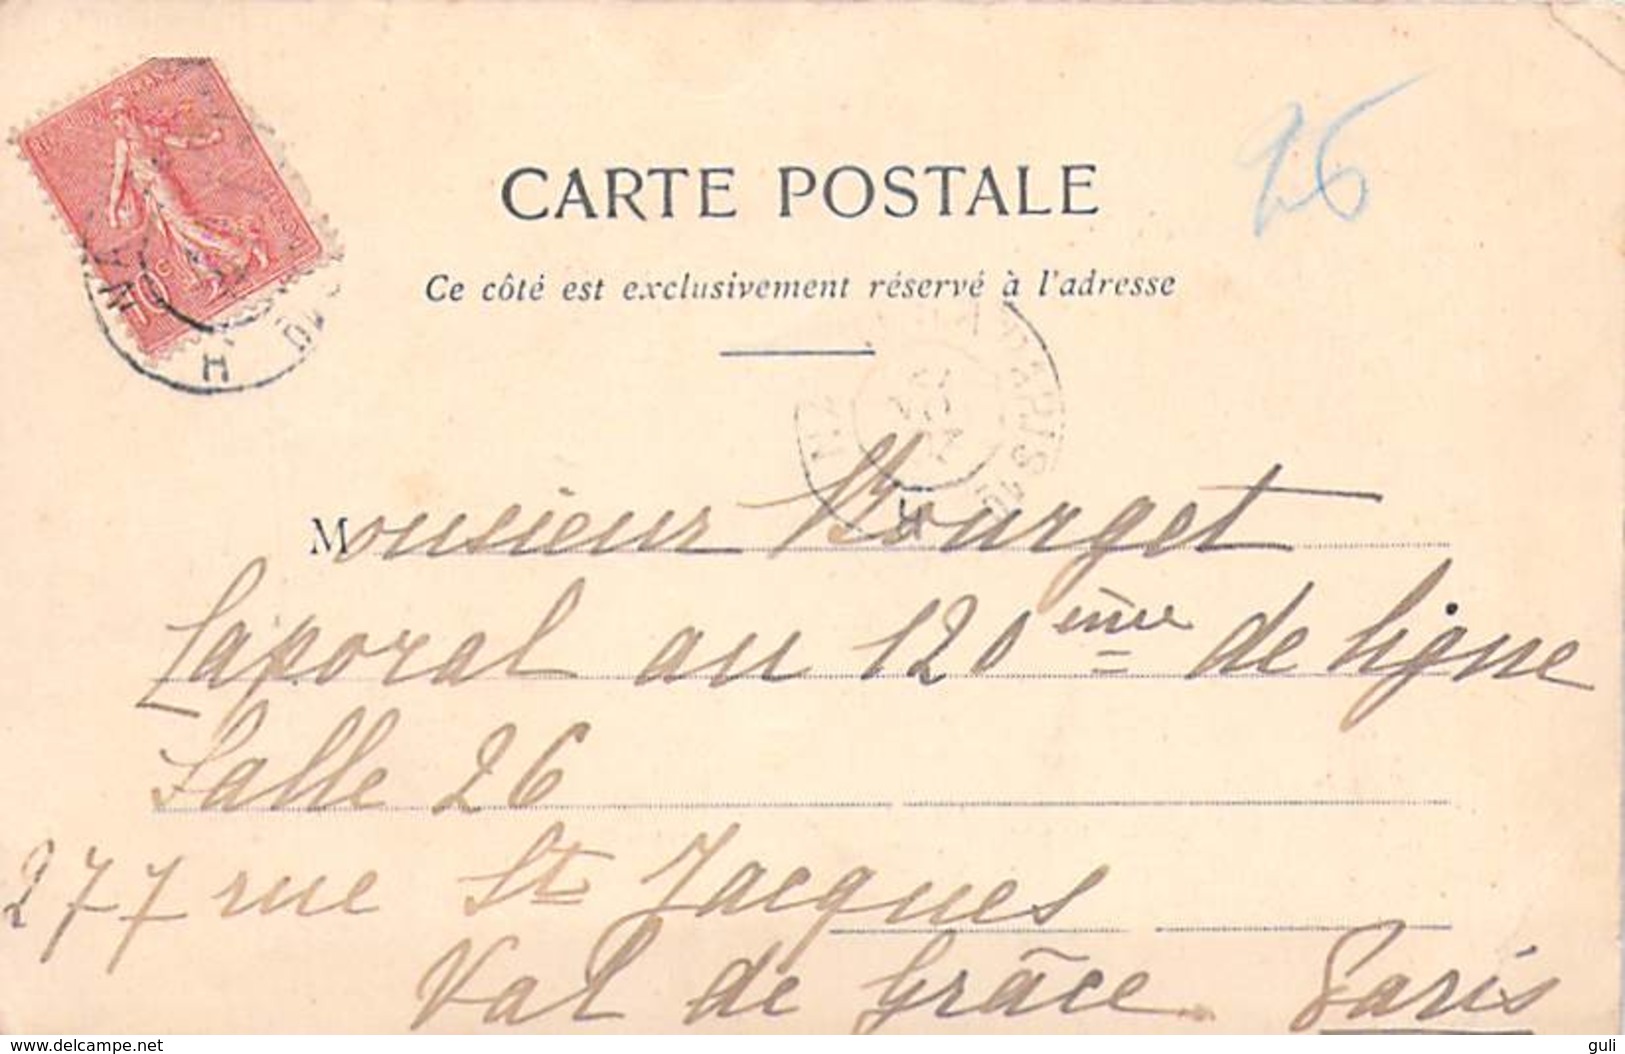 26
CARTE POSTALE
Ce côté est exclusivement réservé à l'adresse
PARIS
Monsieur Bourget
Caporal au 120ème de ligne
Salle 26
277 rue St Jacques
Val de Grâce Paris
www.delcampe.net
guli